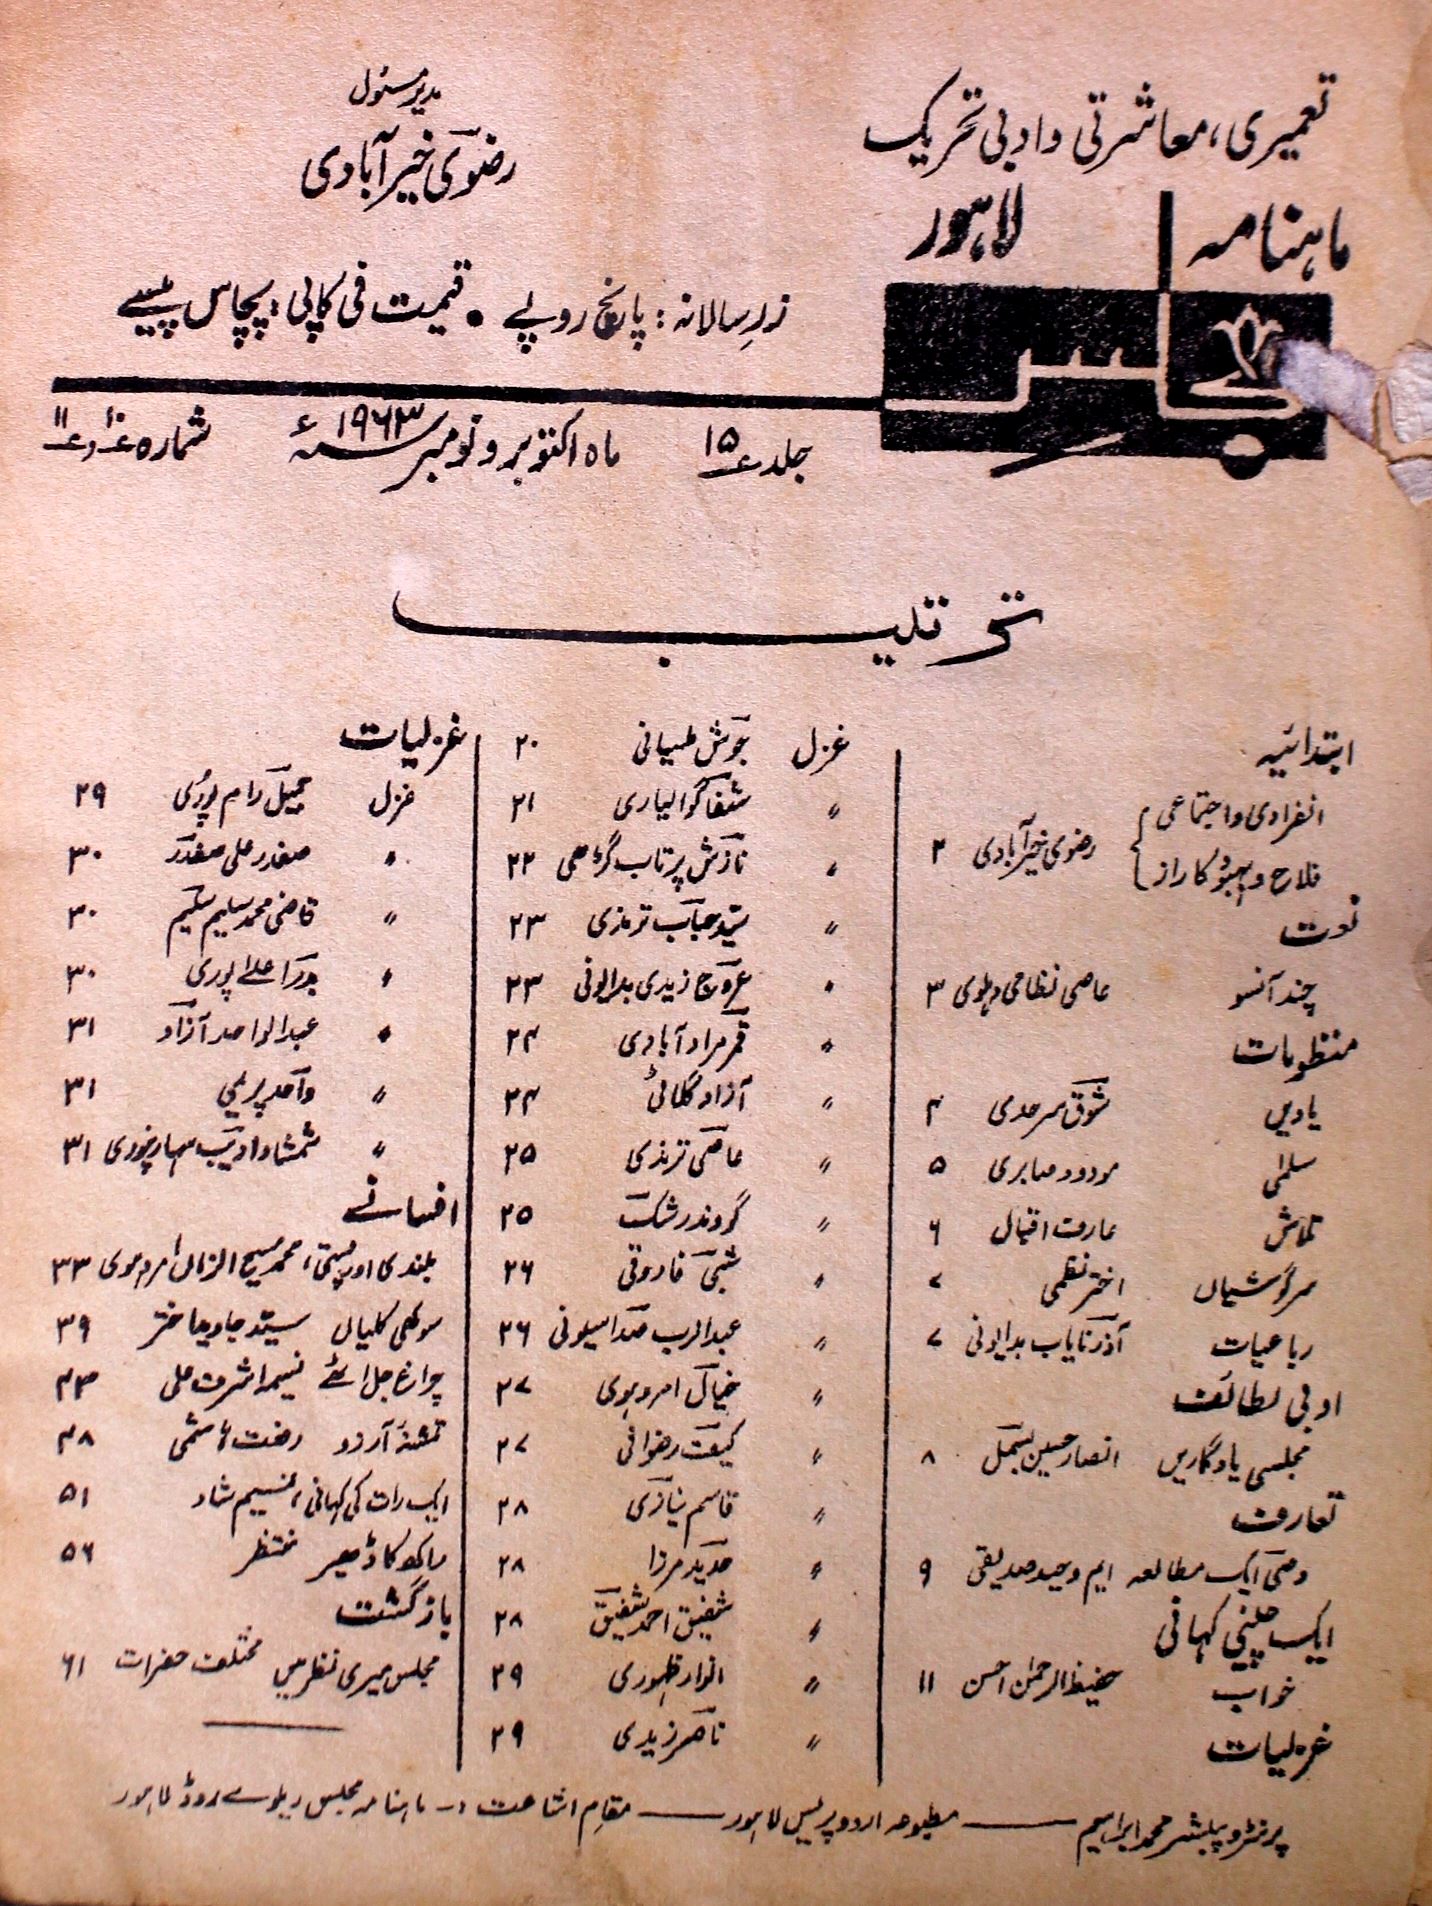 تعمیری، معاشرتی و ادبی تحریک
ماہنامہ لاہور
مجلس
مدیر مسئول
رضوی خیرآبادی
زرِ سالانہ: پانچ روپے • قیمت فی کاپی: پچاس پیسے
جلد ۱۵ ماہ اکتوبر و نومبر ۱۹۶۳ء شمارہ ۱۰ و ۱۱
ترتیب
ابتدائیہ
انفرادی و اجتماعی
فلاح و بہبود کا راز رضوی خیرآبادی ۲
نعت
چند آنسو عاصی نظامی دہلوی ۳
منظومات
یادیں شوق سرحدی ۴
سلمیٰ مودود صابری ۵
تلاش عارف اقبال ۶
سرگوشیاں اختر نظمی ۷
رباعیات آذر نایاب بدایونی ۷
ادبی لطائف
مجلسی یادگاریں انصار حسین بسمل ۸
تعارف
وصی ایک مطالعہ ایم وحید صدیقی ۹
ایک چینی کہانی
خواب حفیظ الرحمٰن احسن ۱۱
غزلیات
غزل جوش ملسیانی ۲۰
〃 شفا گوالیاری ۲۱
〃 نازش پرتاب گڑھی ۲۲
〃 سیّد حباب ترمذی ۲۳
〃 عروج زیدی بدایونی ۲۳
〃 قمر مرادآبادی ۲۴
〃 آزاد گلاٹی ۲۴
〃 عاصی ترمذی ۲۵
〃 گووندر شک ۲۵
〃 شبی فاروقی ۲۶
〃 عبدالرب صدا سیلونی ۲۶
〃 خیال امروہوی ۲۷
〃 کیف رضوانی ۲۷
〃 قاسم نیازی ۲۸
〃 حدید مرزا ۲۸
〃 شفیق احمد شفیق ۲۸
〃 انوار ظہوری ۲۹
〃 ناصر زیدی ۲۹
غزلیات
غزل جمیل رام پوری ۲۹
〃 صفدر علی صفدر ۳۰
〃 قاضی محمد سلیم سلیم ۳۰
〃 بدر اعلےٰ پوری ۳۰
〃 عبدالواحد آزاد ۳۱
〃 واحد پریمی ۳۱
〃 شمشاد ادیب سہارنپوری ۳۱
افسانے
بلندی اور پستی، محمد مسیح الزماں امروہوی ۳۳
سوکھی کلیاں سیّد جاوید اختر ۳۹
چراغ جل اٹھے نسیمہ اشرف علی ۴۳
تشنۂ آرزو رفعت ہاشمی ۴۸
ایک رات کی کہانی، نسیم شاد ۵۱
راکھ کا ڈھیر منتظر ۵۶
بازگشت
مجلس میری نظر میں مختلف حضرات ۶۱
پرنٹر و پبلشر محمد ابراہیم —— مطبوعہ اردو پریس لاہور —— مقامِ اشاعت :۔ ماہنامہ مجلس ریلوے روڈ لاہور